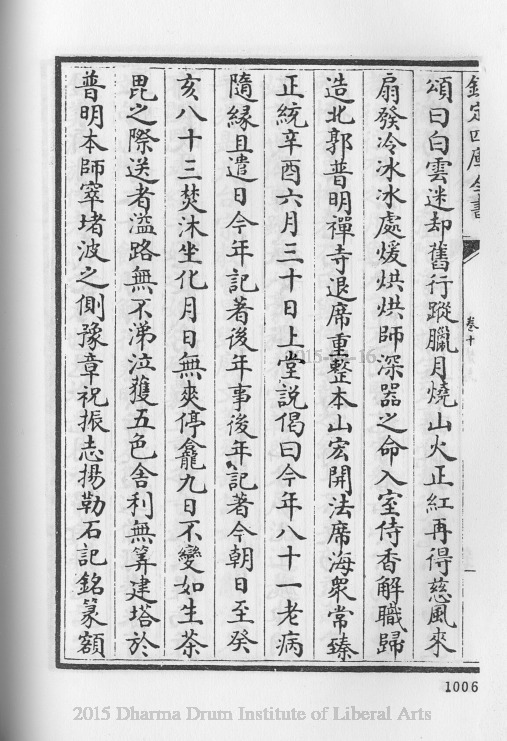 欽定四庫全書
卷十
頌曰白雲迷却舊行蹤臘月燒山火正紅再得慈風來
扇發冷冰冰處煖烘烘師深器之命入室侍香解職歸
造北郭普明禪寺退席重整本山宏開法席海衆常臻
正統辛酉六月三十日上堂説偈曰今年八十一老病
隨縁且遣日今年記著後年事後年記著今朝日至癸
亥八十三焚沐坐化月日無爽停龕九日不變如生荼
毘之際送者溢路無不涕泣獲五色舍利無筭建塔於
普明本師窣堵波之側豫章祝振志揚勒石記銘篆額
2015-01-16
1006
2015 Dharma Drum Institute of Liberal Arts